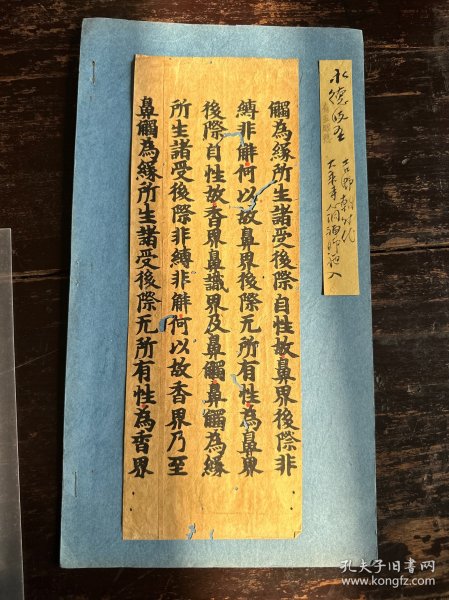 觸為緣所生諸受後際自性故鼻界後際非
縛非解何以故鼻界後際无所有性為鼻界
後際自性故香界鼻識界及鼻觸鼻觸為緣
所生諸受後際非縛非解何以故香界乃至
鼻觸為緣所生諸受後際无所有性為香界
永德
孔夫子旧书网
www.kongfz.com